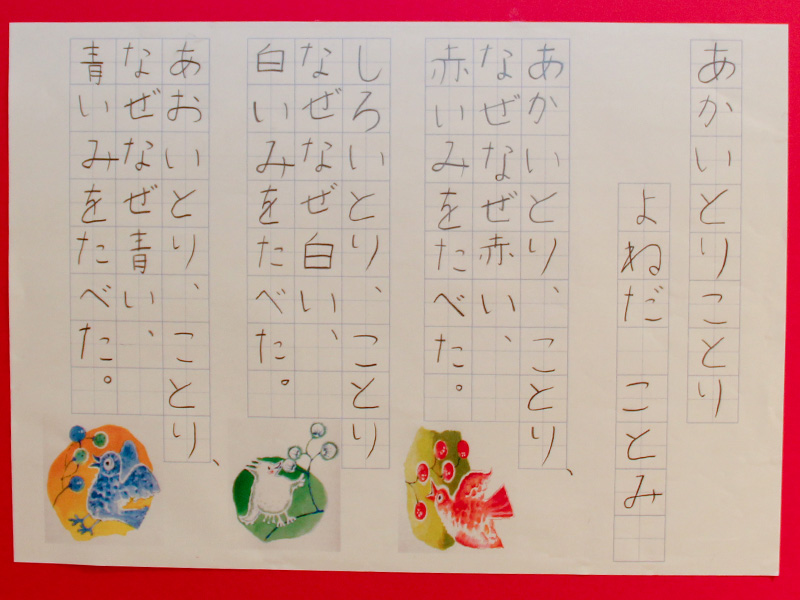 あかいとりことり
よねだ ことみ
あかいとり、ことり、
なぜなぜ赤い、
赤いみをたべた。
しろいとり、ことり
なぜなぜ白い、
白いみをたべた。
あおいとり、ことり、
なぜなぜ青い、
青いみをたべた。